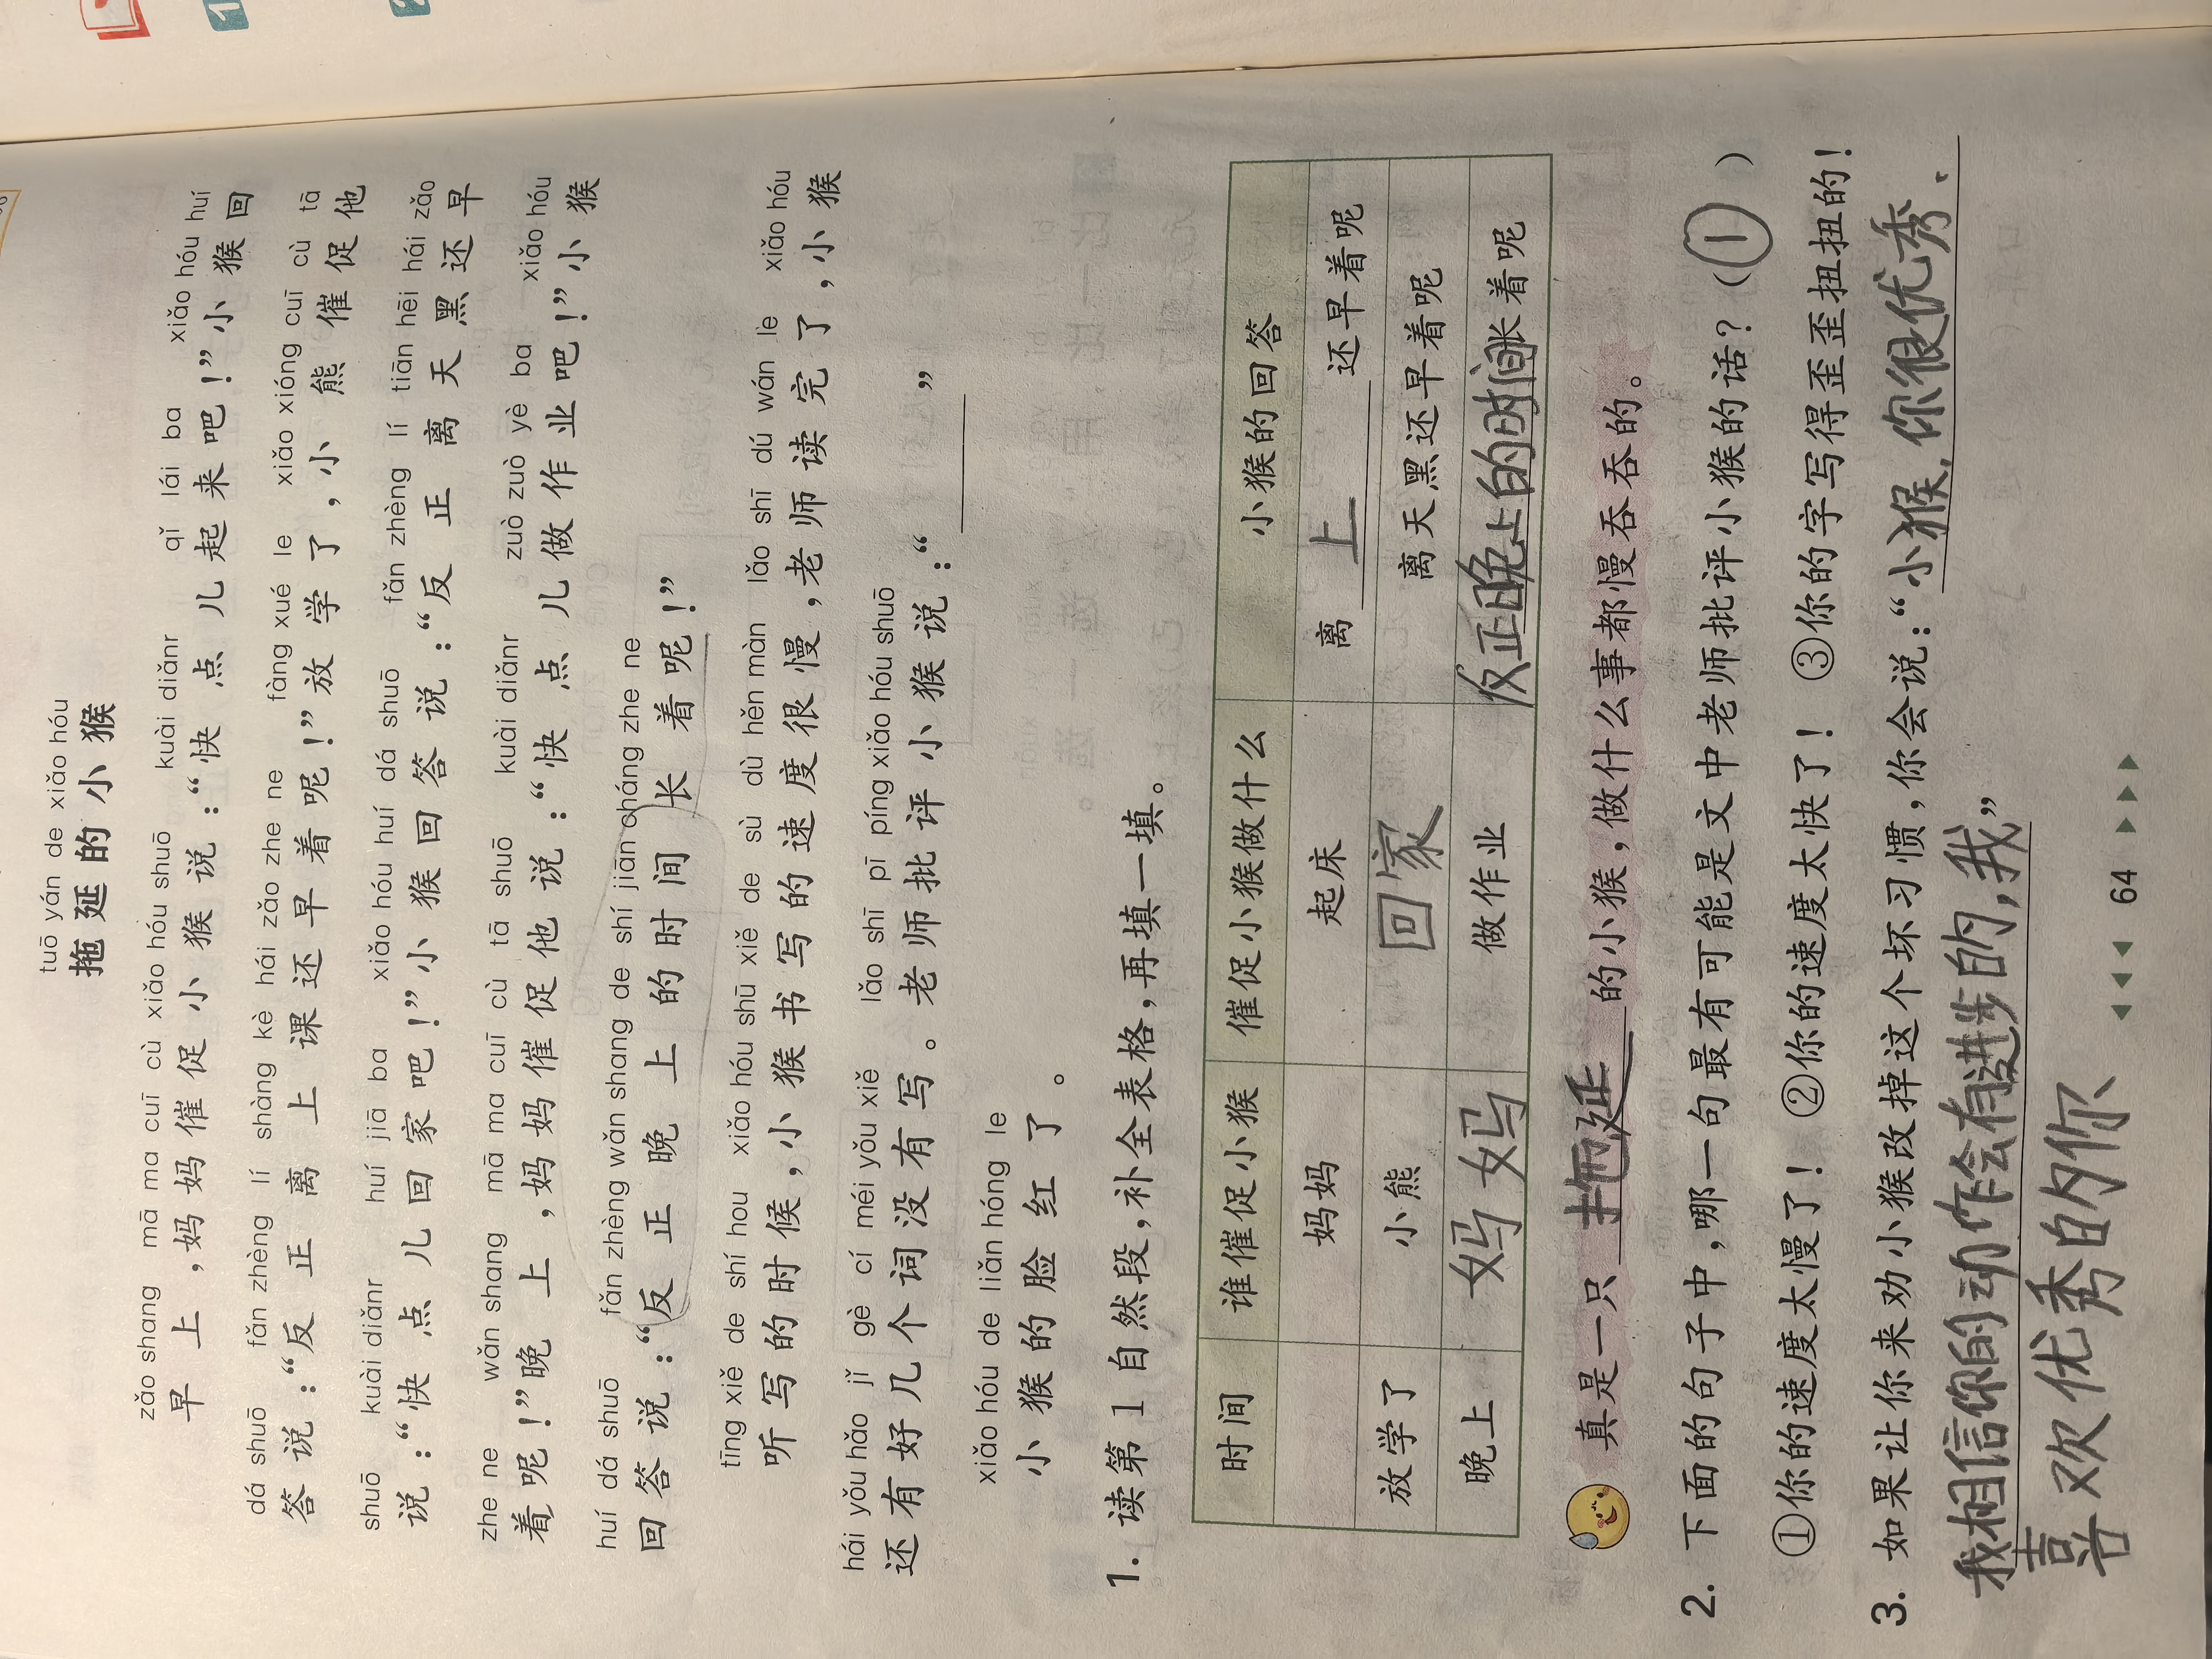 tuō yán de xiǎo hóu
拖延的小猴
zǎo shang mā ma cuī cù xiǎo hóu shuō kuài diǎnr qǐ lái ba xiǎo hóu huí
早上，妈妈催促小猴说：“快点儿起来吧！”小猴回
dá shuō fǎn zhèng lí shàng kè hái zǎo zhe ne fàng xué le xiǎo xióng cuī cù tā
答说：“反正离上课还早着呢！”放学了，小熊催促他
shuō kuài diǎnr huí jiā ba xiǎo hóu huí dá shuō fǎn zhèng lí tiān hēi hái zǎo
说：“快点儿回家吧！”小猴回答说：“反正离天黑还早
zhe ne wǎn shang mā ma cuī cù tā shuō kuài diǎnr zuò zuò yè ba xiǎo hóu
着呢！”晚上，妈妈催促他说：“快点儿做作业吧！”小猴
huí dá shuō fǎn zhèng wǎn shang de shí jiān cháng zhe ne
回答说：“反正晚上的时间长着呢！”
tīng xiě de shí hou xiǎo hóu shū xiě de sù dù hěn màn lǎo shī dú wán le xiǎo hóu
听写的时候，小猴书写的速度很慢，老师读完了，小猴
hái yǒu hǎo jǐ gè cí méi yǒu xiě lǎo shī pī píng xiǎo hóu shuō
还有好几个词没有写。老师批评小猴说：“ ”
xiǎo hóu de liǎn hóng le
小猴的脸红了。
1. 读第1自然段，补全表格，再填一填。
时间 谁催促小猴 催促小猴做什么 小猴的回答
妈妈 起床 离上还早着呢
放学了 小熊 回家 离天黑还早着呢
晚上 妈妈 做作业 反正晚上的时间长着呢
真是一只拖延的小猴，做什么事都慢吞吞的。
2. 下面的句子中，哪一句最有可能是文中老师批评小猴的话？（①）
①你的速度太慢了！ ②你的速度太快了！ ③你的字写得歪歪扭扭的！
3. 如果让你来劝小猴改掉这个坏习惯，你会说：“小猴，你很优秀、
我相信你的动作会有进步的，我”
喜欢优秀的你
64